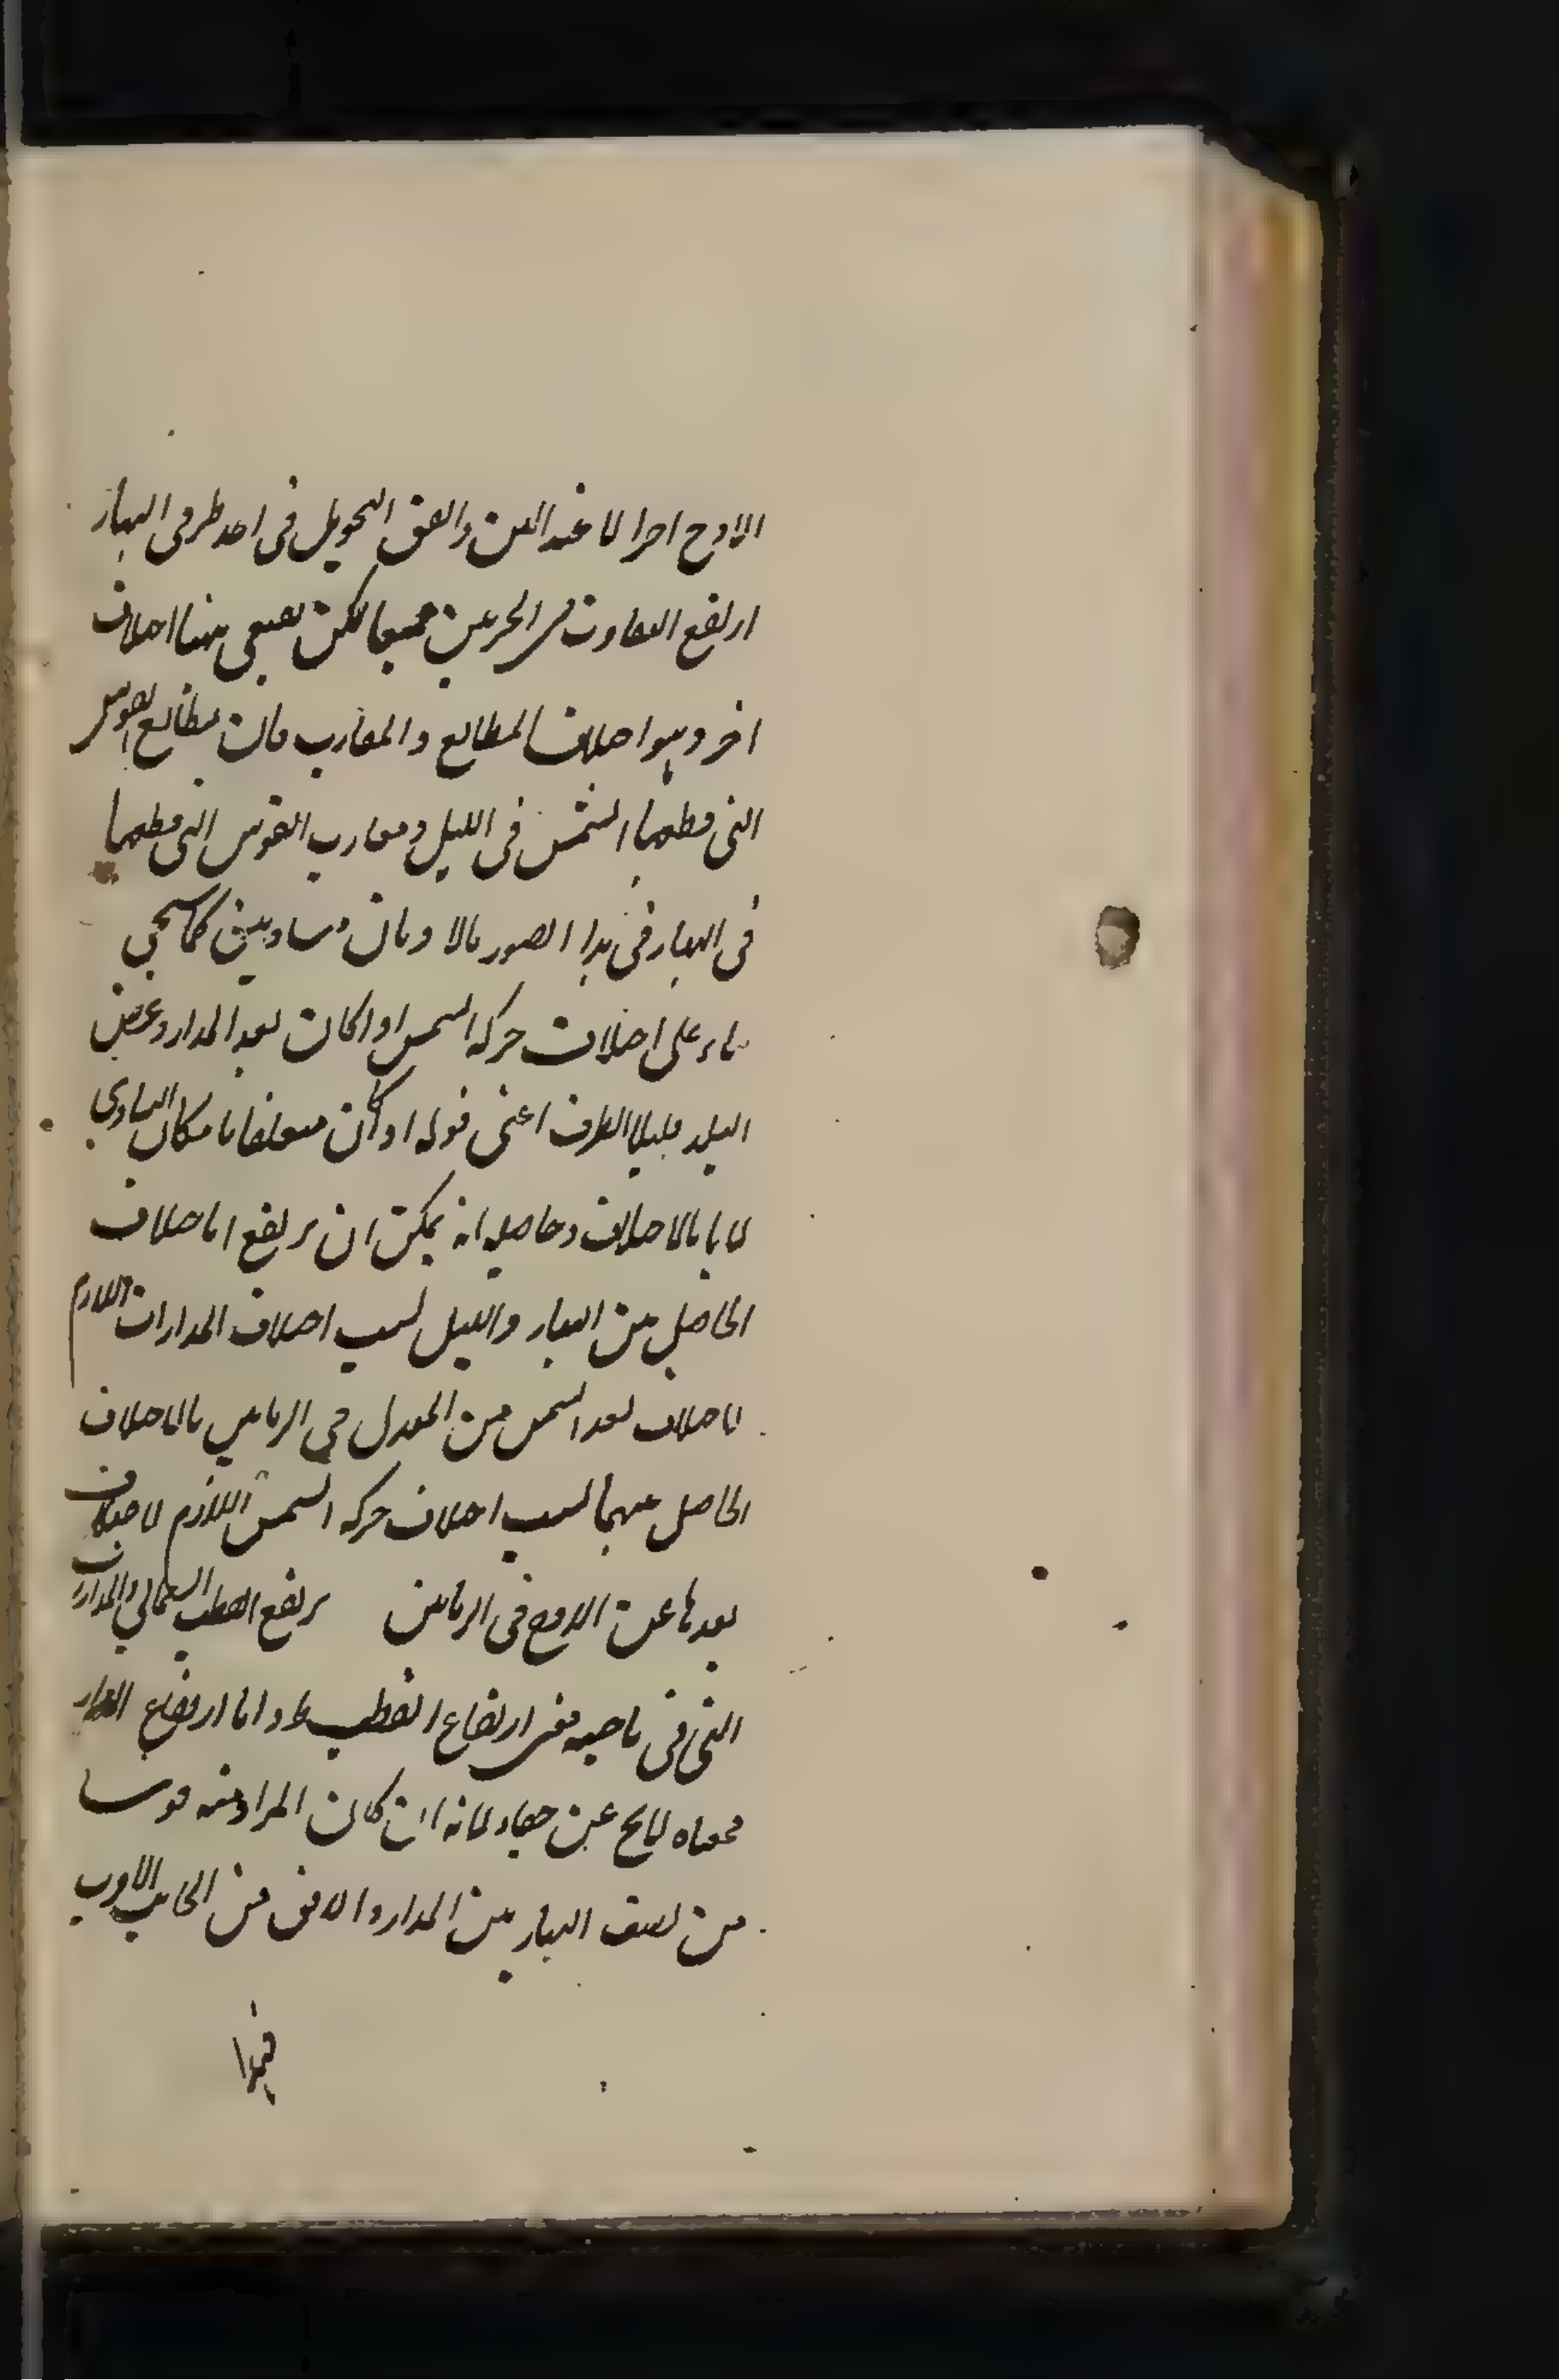 الاوج احرا لا عند العن واتفق التحويل فى احد طرفى النهار
ارتفع التفاوت من الجزئين جميعا لكن يبقى ههنا اختلاف
اخر وهو اختلاف المطالع والمغارب فان مطالع القوس
التى قطعها الشمس فى الليل ومغارب القوس التى قطعها
فى النهار فى هذا الصور مالا ومان متساويين كما سيجي
بناء على اختلاف حركة الشمس اذا كان بعد المدار وعرض
البلد قليلا الظرف اعنى قوله اذا كان متعلقا بامكان التساوى
لا بالاختلاف وحاصله انه يمكن ان يرتفع الاختلاف
الحاصل بين النهار والليل بسبب اختلاف المدارات اللازم
لاختلاف بعد الشمس من المعدل فى الزمانين بالاختلاف
الحاصل بينهما بسبب اختلاف حركة الشمس اللازم لاختلاف
بعدها عن الاوج فى الزمانين يرتفع القطب الشمالى والمدارات
التى فى ناحيته معنى ارتفاع القطب ظ واما ارتفاع المدار
فمعناه لايخ عن خفاء لانه ان كان المراد منه قوسا
من نصف النهار بين المدار والافق من الجانب الاقرب
فهذا